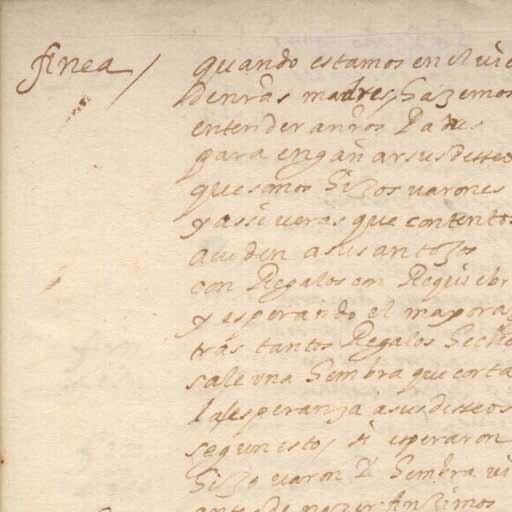 finea / quando estamos en el vie
de nr̃as madres, hazemos
entender a nr̃os Padres
para engañar sus desseos
que somos hijos varones
y assi veras que contentos
acuden a sus antojos
con Regalos con Requiebr
y esperando el mayoraz
tras tantos Regalos hecho
sale una hembra que corta
la esperanza a sus desseos
segun esto, si esperaron
hijo varon y hembra vi
antes de nazer finximos